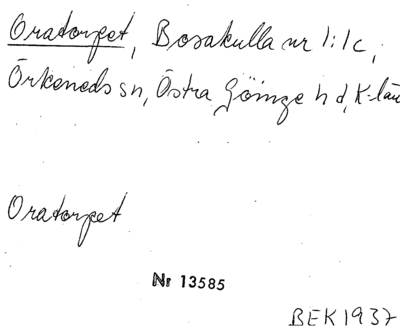 Oratorpet, Bosakulla nr 1:1c,
Örkeneds sn, Östra Göinge hd, K-län
Oratorpet
Nr 13585
BEK 1937